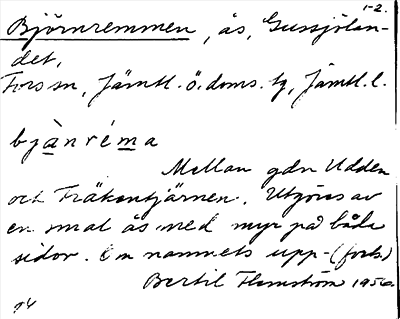 1-2.
Björnremmen, ås, Gussjölan-
det,
Fors sn, Jämtl. ö. doms. tg, Jämtl. l.
bjànréma
Mellan gdn Udden
och Fräkentjärnen. Utgöres av
en smal ås med myr på båda
sidor. Om namnets upp- (forts.)
Bertil Flemström 1950